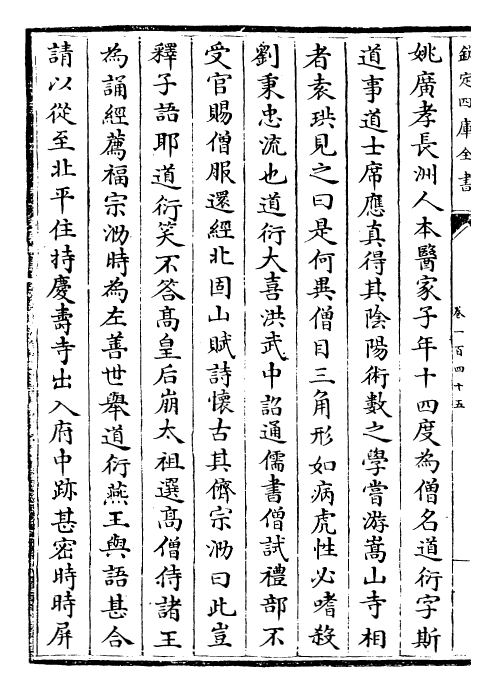 欽定四庫全書
卷一百四十五
姚廣孝長洲人本醫家子年十四度為僧名道衍字斯
道事道士席應真得其陰陽術數之學嘗游嵩山寺相
者袁珙見之曰是何異僧目三角形如病虎性必嗜殺
劉秉忠流也道衍大喜洪武中詔通儒書僧試禮部不
受官賜僧服還經北固山賦詩懷古其儕宗泐曰此豈
釋子語耶道衍笑不答髙皇后崩太祖選髙僧侍諸王
為誦經薦福宗泐時為左善世舉道衍燕王與語甚合
請以從至北平住持慶壽寺出入府中跡甚宻時時屏